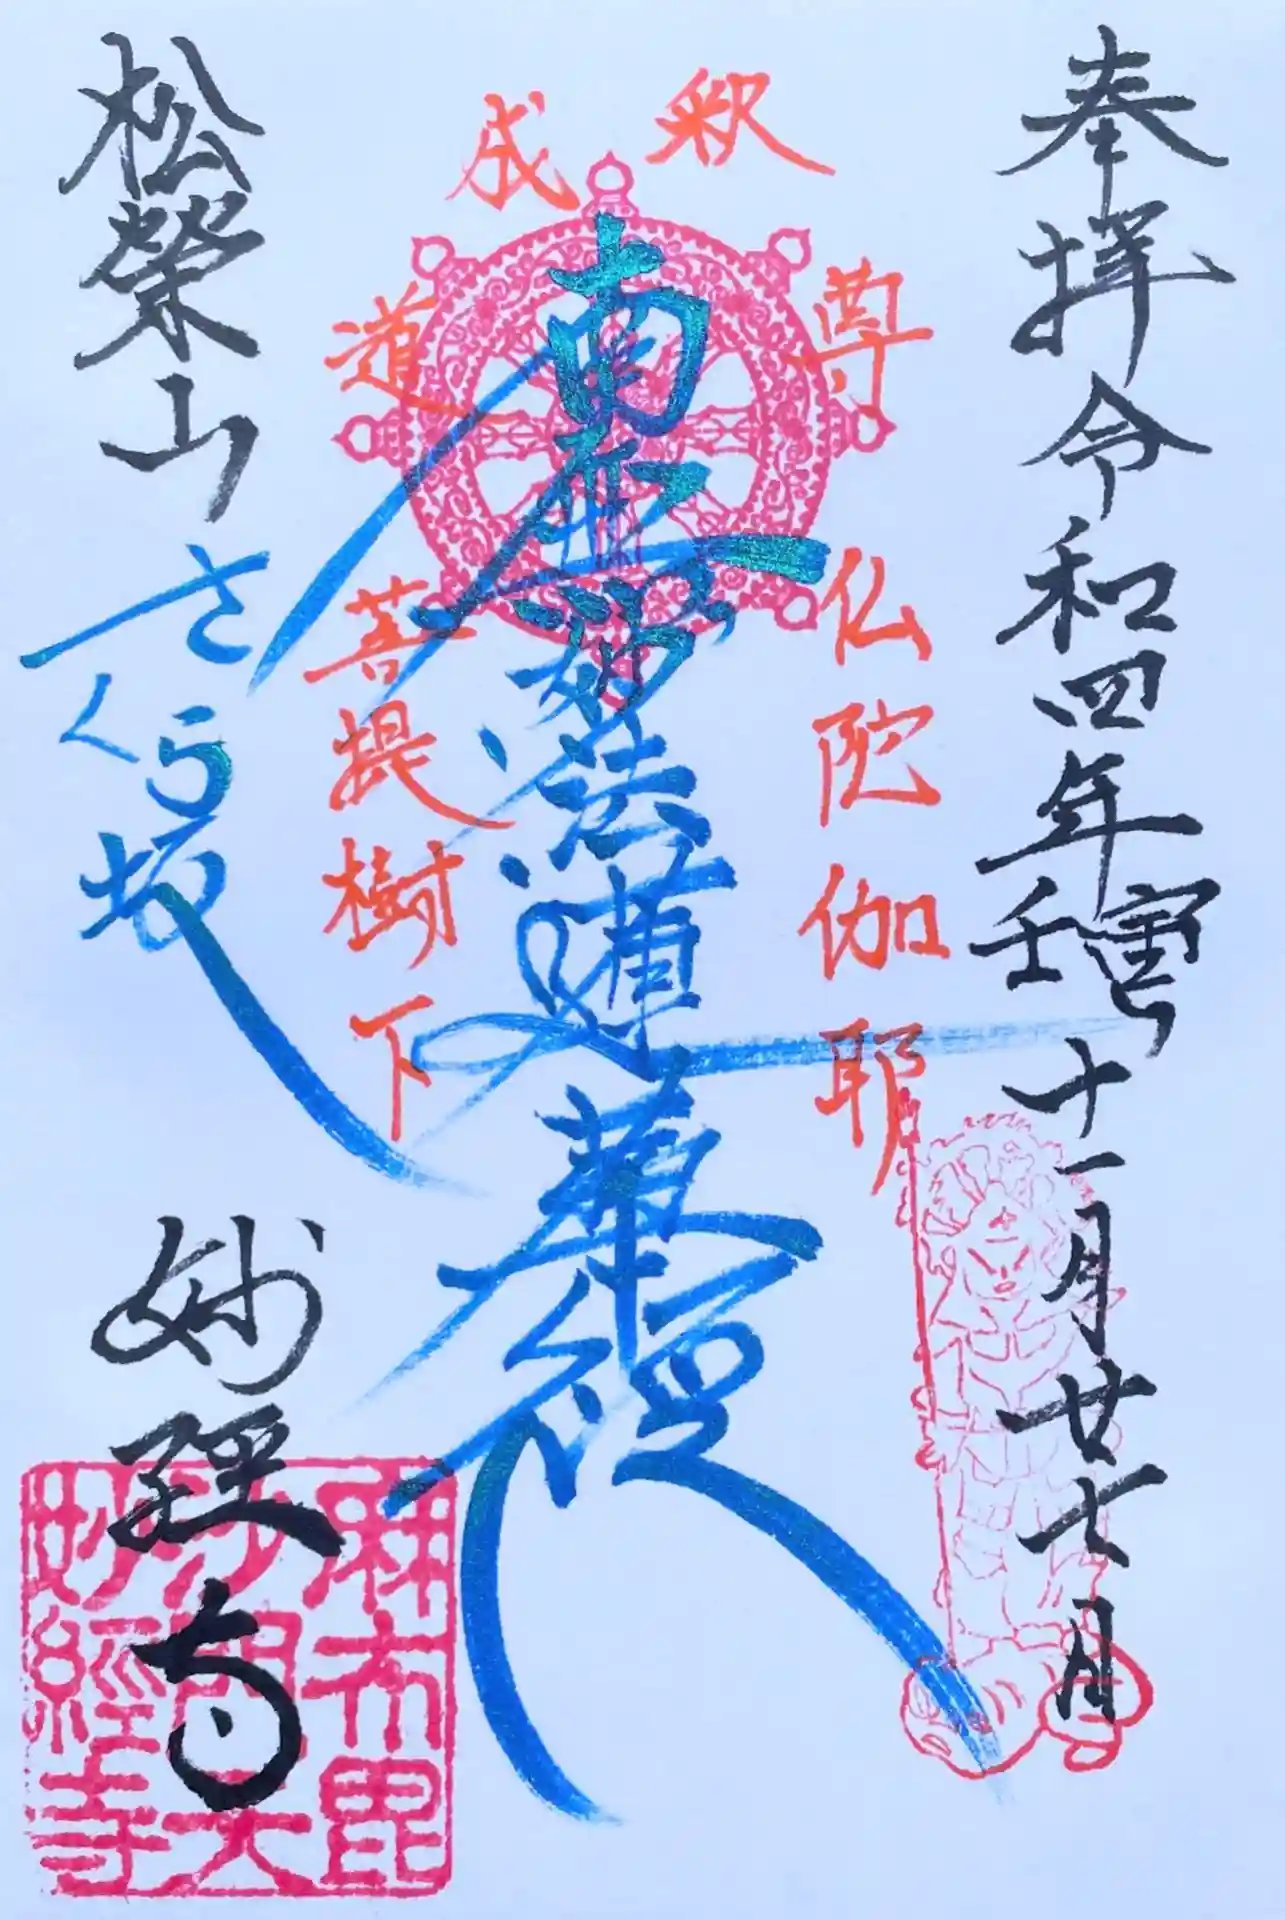 奉拝令和四年壬寅十一月廿七日
釈尊成道
仏陀伽耶
南無妙法蓮華経
菩提樹下
松榮山
さくら坊
妙経寺
麻布毘
沙門天
妙經寺